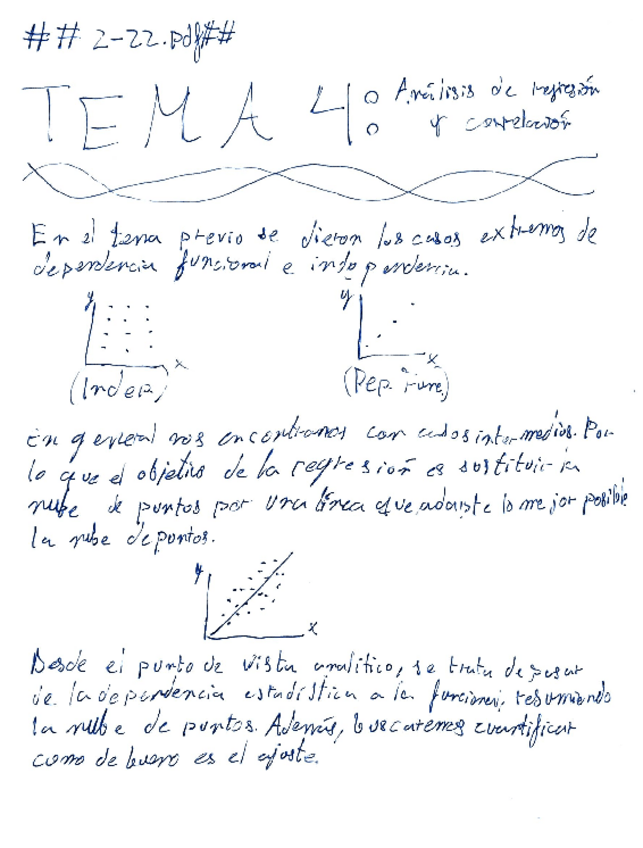 ## 2-22.pdf##
TEMA 4: Análisis de regresión
y correlación
En el tema previo se dieron los casos extremos de
dependencia funcional e independencia.
y x
(Indep.)
y x
(Dep. Func.)
En general nos encontramos con casos intermedios. Por
lo que el objetivo de la regresión es sustituir la
nube de puntos por una línea que adajste lo mejor posible
la nube de puntos.
y x
Desde el punto de vista analítico, se trata de pasar
de la dependencia estadística a la funcional, resumiendo
la nube de puntos. Además, buscaremos cuantificar
como de bueno es el ajuste.